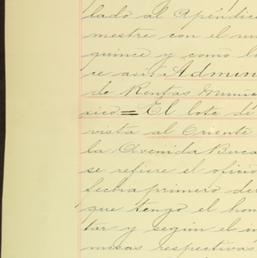 lado al Apéndice
mestre con el nú
quince y como l
ce así: Admin
de Rentas Munic
xico = El lote de
vista al Oriente
la Avenida Buca
se refiere el oficio
fecha primero de
que tengo el hon
tar y según el in
mesas respectivas